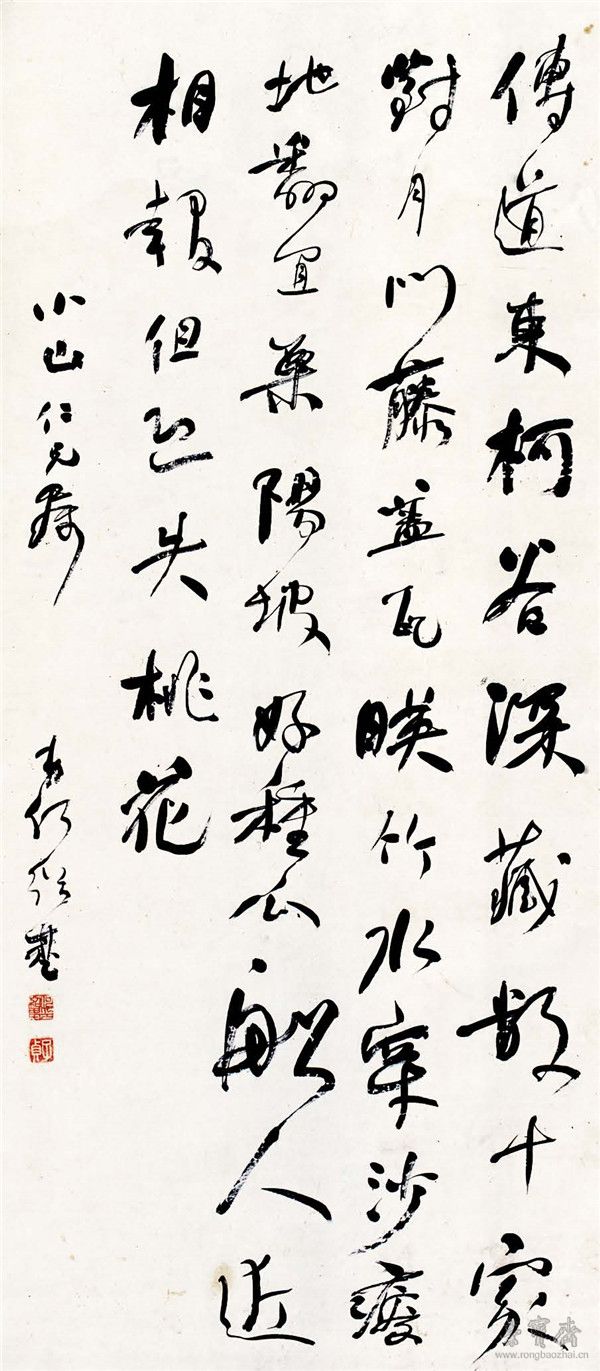 傳道東柯谷深藏數十家
對月門藤蓋瓦暎竹水穿沙瘦
地翻宜粟陽坡好種瓜船人近
相報但恐失桃花
小山仁兄屬 弟何紹基
子貞
榮寶齋
www.rongbaozhai.cn